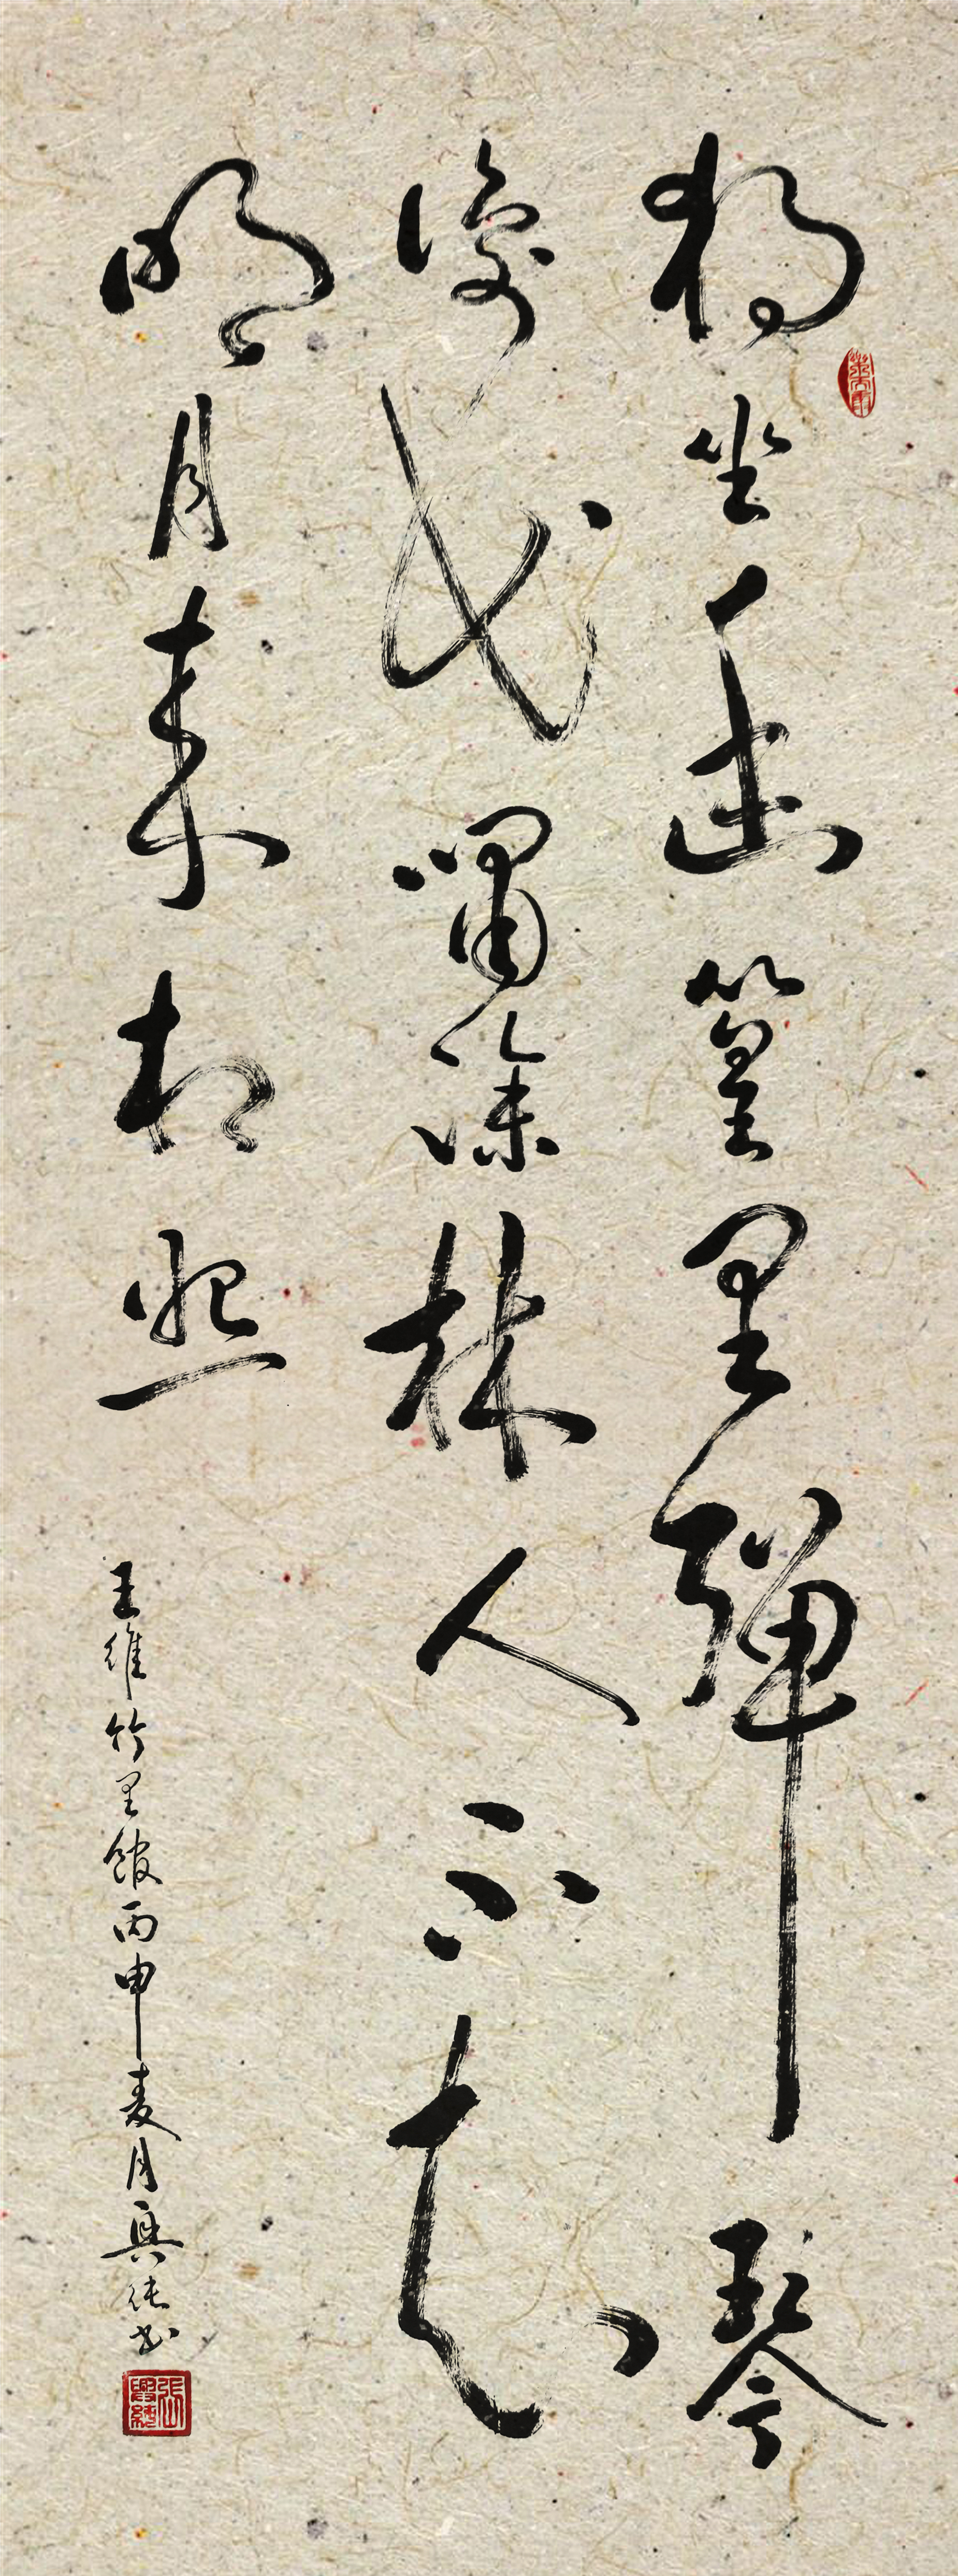 獨坐幽篁里彈琴
復長嘯深林人不知
明月來相照
王維竹里館丙申麦月興書